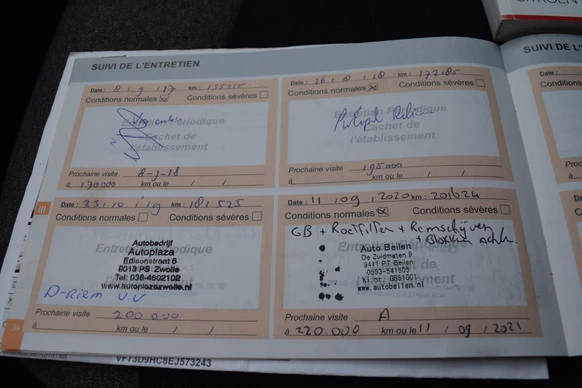 CITROËN
SUIVI DE L'ENTRETIEN
SUIVI DE L'ENTRE
Date : 8 / 9 / 17 km : 135215
Conditions normales Conditions sévères
Entretien Périodique
Cachet de
l'établissement
Prochaine visite 8-9-18
à 170000 km ou le / /
Date : 16 / 8 / 18 km : 172185
Conditions normales Conditions sévères
Entretien Périodique
Cachet de
l'établissement
Prochaine visite 195000
à km ou le / /
Date : 23 / 10 / 19 km : 181,525
Conditions normales Conditions sévères
Autobedrijf
Autoplaza
Edisonstraat 6
8013 PS Zwolle
Tel: 038-4602102
www.autoplazazwolle.nl
D-Riem v.v
Prochaine visite 200.000
à km ou le / /
Date : 11 / 09 / 2020 km : 201624
Conditions normales Conditions sévères
GB + Roetfilter + Remschijven
+ Blokken achter
Auto Beilen
De Zuidmaten 9
9411 PT Beilen
0593-541505
www.autobeilen.nl
Prochaine visite A
à 220.000 km ou le 11 / 09 / 2021
54
VF73D9HC8EJ573243